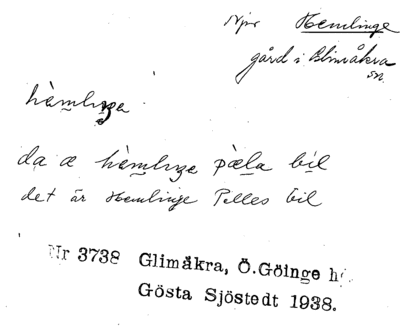 Npr Hemlinge
gård i Glimåkra
sn.
hàmlıŋa
da æ hàmlıŋe pæ̀la bíl
det är Hemlinge Pelles bil
Nr 3738 Glimåkra, Ö.Göinge h
Gösta Sjöstedt 1938.